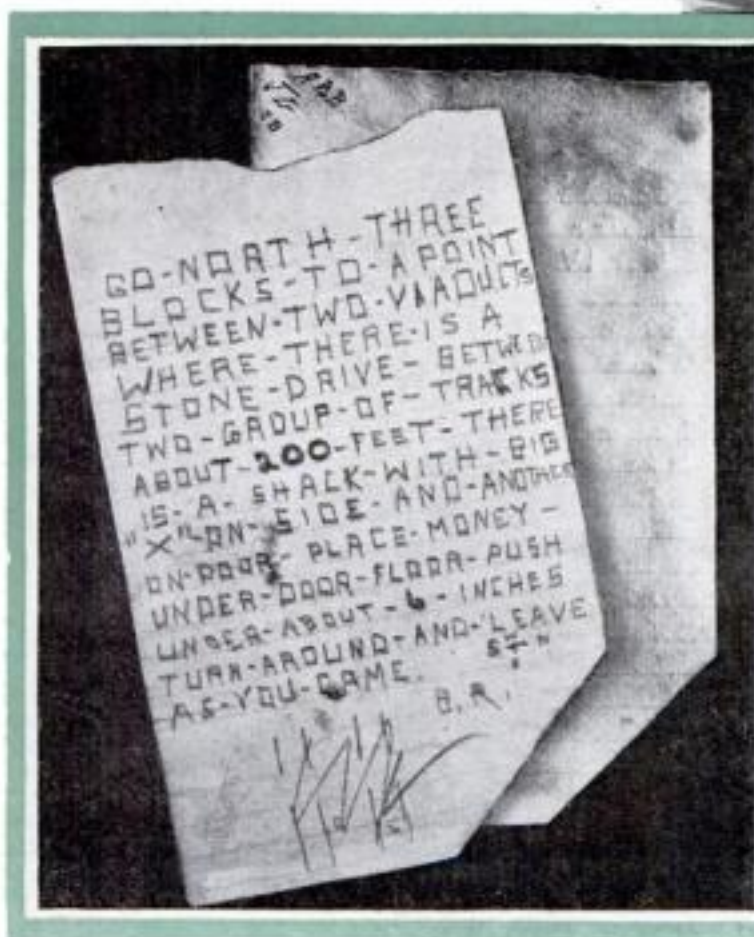 GO-NORTH-THREE
BLOCKS-TO-A POINT
BETWEEN-TWO-VIADUCTS
WHERE-THERE-IS A
STONE-DRIVE-BETWEEN
TWO-GROUP-OF-TRACKS
ABOUT-200-FEET-THERE
IS-A-SHACK-WITH-BIG
"X"-ON-SIDE-AND-ANOTHER
ON-DOOR-PLACE-MONEY-
UNDER-DOOR-FLOOR-PUSH
UNDER-ABOUT-6-INCHES
TURN-AROUND-AND-LEAVE
AS-YOU-CAME.